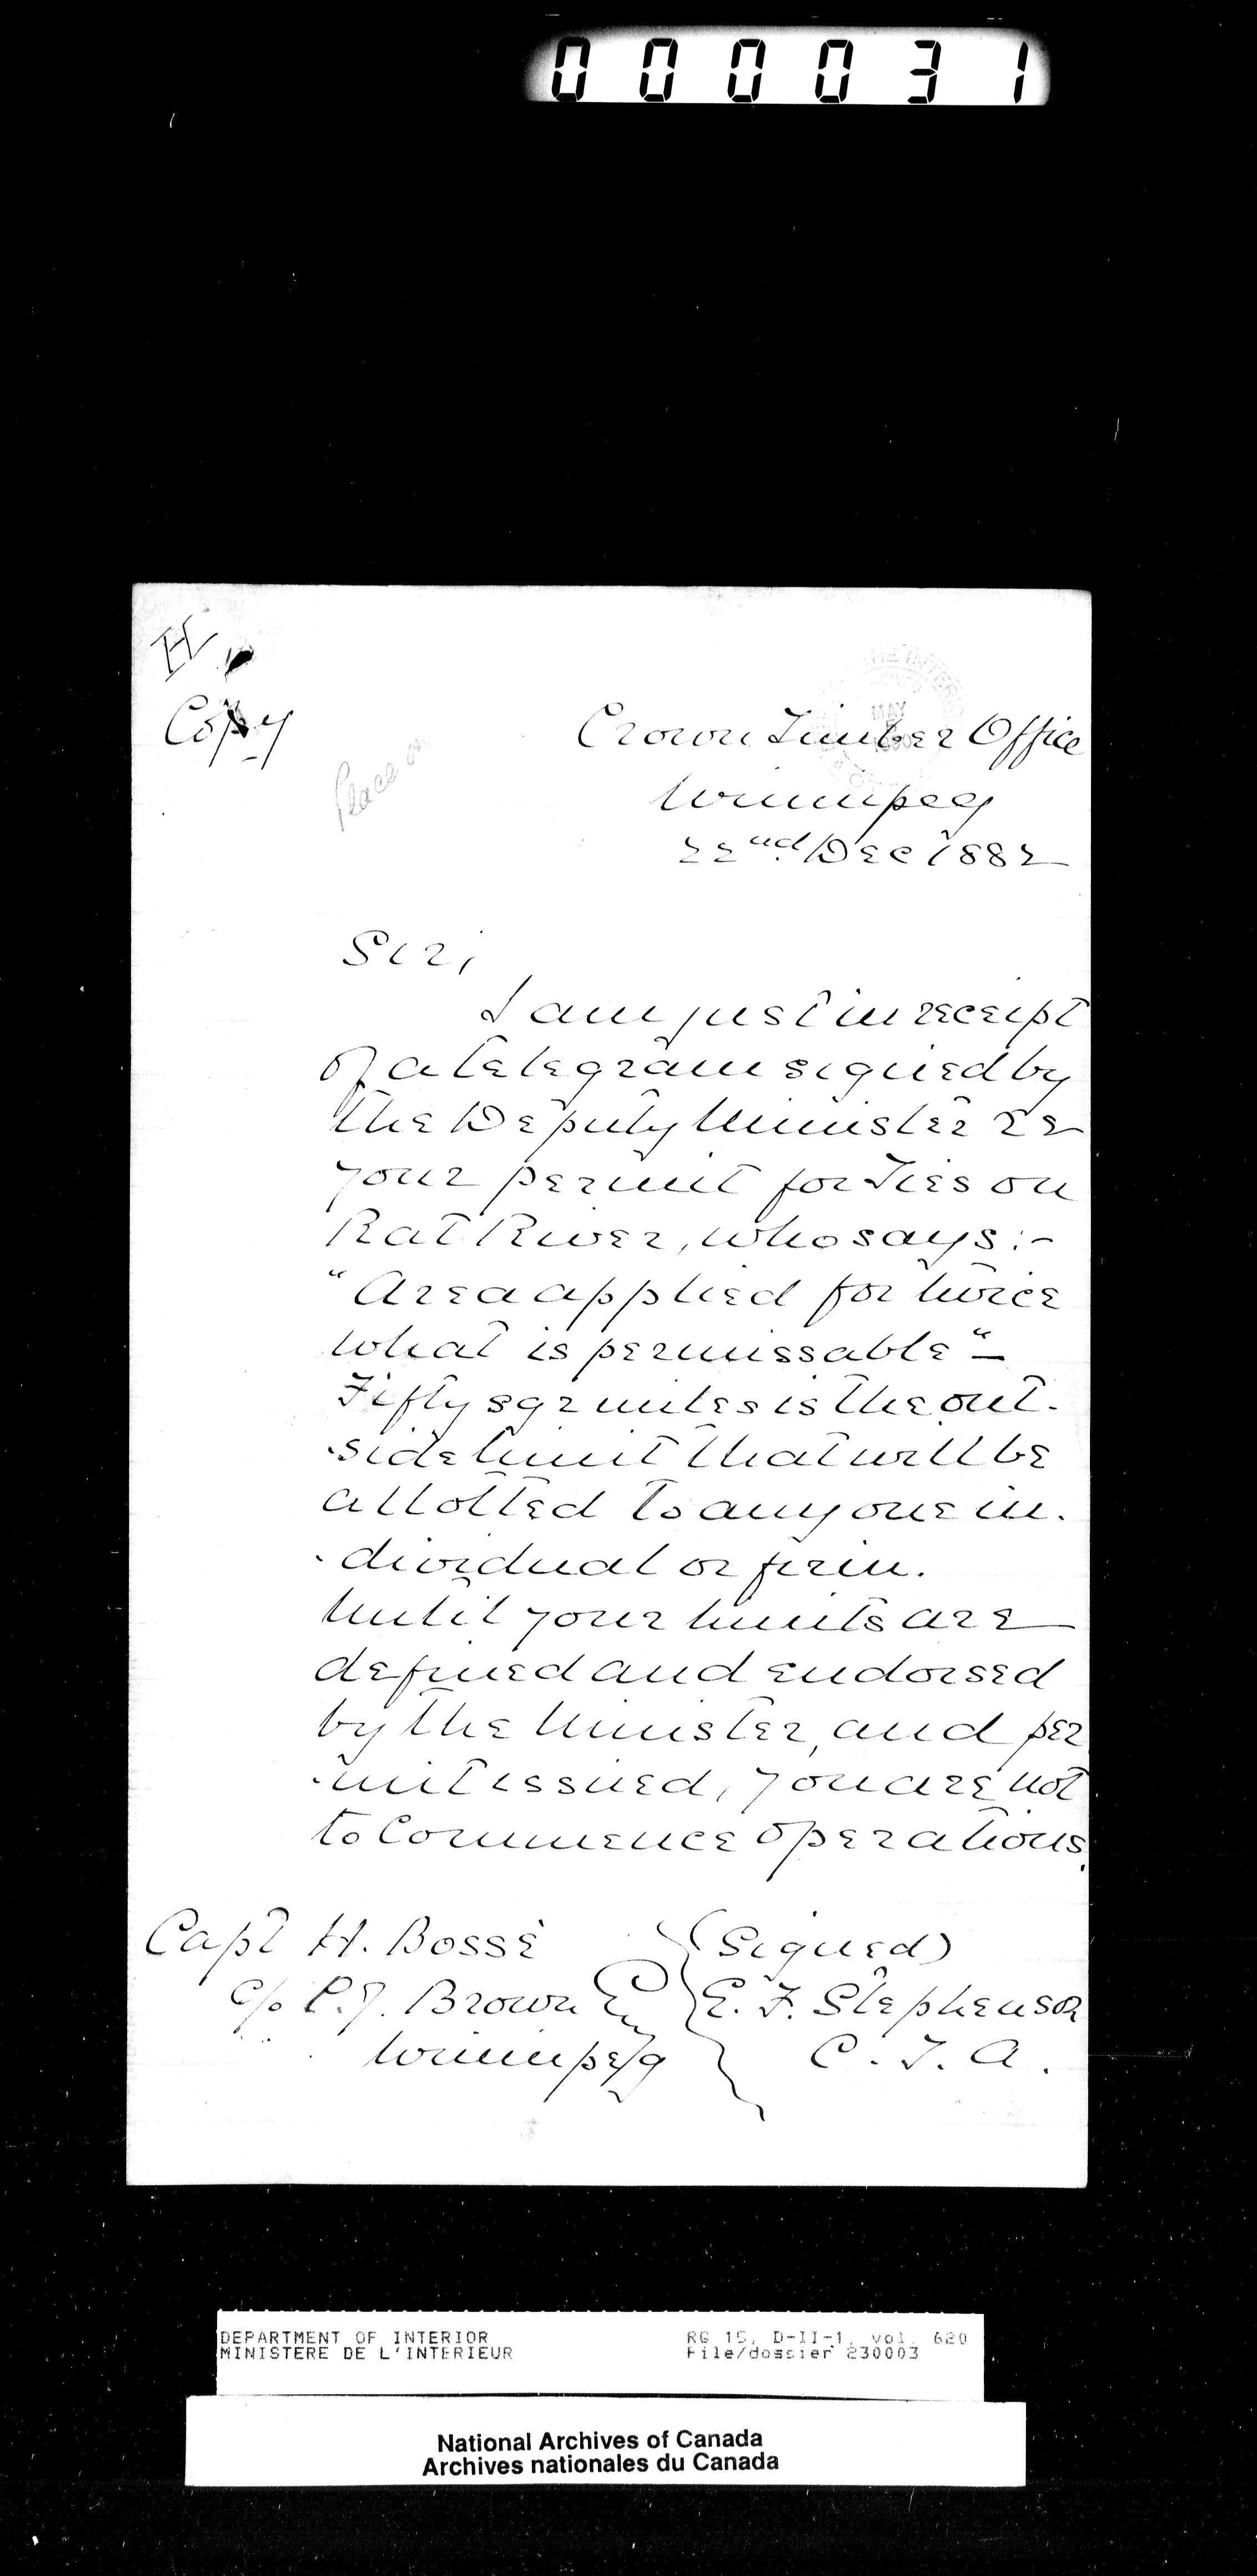 000031
H
Copy
Place on
THE INTERIOR
MAY
Crown Timber Office
Winnipeg
22nd Dec 1882
Sir,
I am just in receipt
of a telegram signed by
the Deputy Minister re
your permit for Ties on
Rat River, who says:-
"Area applied for twice
what is permissable"-
Fifty sqr miles is the out-
-side limit that will be
allotted to any one in-
-dividual or firm.
Until your limits are
defined and endorsed
by the Minister, and per
-mit issued, you are not
to commence operations.
Capt H. Bossé
c/o P.J. Brown Esq
Winnipeg
(Signed)
E. F. Stephenson
C. T. A.
DEPARTMENT OF INTERIOR
MINISTERE DE L'INTERIEUR
RG 15, D-II-1, vol. 620
File/dossier 230003
National Archives of Canada
Archives nationales du Canada